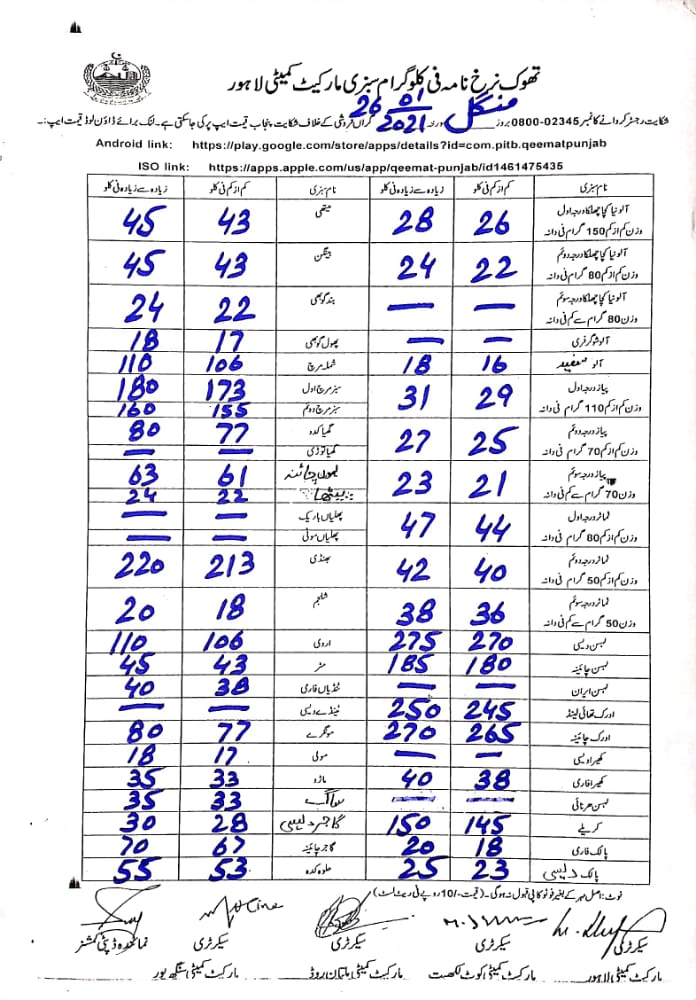 تھوک نرخ نامہ فی کلوگرام سبزی مارکیٹ کمیٹی لاہور
شکایت رجسٹر کروانے کا نمبر 02345-0800 بروز منگل مورخہ 26 01 2021 گراں فروشی کے خلاف شکایت پنجاب قیمت ایپ پر کی جاسکتی ہے۔ لنک برائے ڈاؤن لوڈ قیمت ایپ:۔
Android link: https://play.google.com/store/apps/details?id=com.pitb.qeematpunjab
ISO link: https://apps.apple.com/us/app/qeemat-punjab/id1461475435
نام سبزی کم از کم فی کلو زیادہ سے زیادہ فی کلو نام سبزی کم از کم فی کلو زیادہ سے زیادہ فی کلو
آلو نیا کچا چھلکا درجہ اول 26 28 میتھی 43 45
وزن کم از کم 150 گرام فی دانہ
آلو نیا کچا چھلکا درجہ دوئم 22 24 بینگن 43 45
وزن کم از کم 80 گرام فی دانہ
آلو نیا کچا چھلکا درجہ سوئم — — بند گوبھی 22 24
وزن 80 گرام سے کم فی دانہ
آلو شوگر فری — — پھول گوبھی 17 18
آلو سفید 16 18 شملہ مرچ 106 110
پیاز درجہ اول 29 31 سبز مرچ اول 173 180
وزن کم از کم 110 گرام فی دانہ سبز مرچ دوئم 155 160
پیاز درجہ دوئم 25 27 گھیا کدو 77 80
وزن کم از کم 70 گرام فی دانہ گھیا توری — —
پیاز درجہ سوئم 21 23 لیموں چائنہ 61 63
وزن 70 گرام سے کم فی دانہ پیٹھا 22 24
ٹماٹر درجہ اول 44 47 پھلیاں باریک — —
وزن کم از کم 80 گرام فی دانہ پھلیاں موٹی — —
ٹماٹر درجہ دوئم 40 42 بھنڈی 213 220
وزن کم از کم 50 گرام فی دانہ
ٹماٹر درجہ سوئم 36 38 شلجم 18 20
وزن 50 گرام سے کم فی دانہ
لہسن دیسی 270 275 اروی 106 110
لہسن چائینہ 180 185 مٹر 43 45
لہسن ایران — — ٹینڈیاں فارمی 38 40
ادرک تھائی لینڈ 245 250 ٹینڈے دیسی — —
ادرک چائینہ 265 270 مونگرے 77 80
کھیرا دیسی — — مولی 17 18
کھیرا فارمی 38 40 مارو 33 35
لہسن ہرنائی — — ساگ 33 35
کریلے 145 150 گاجر دیسی 28 30
پالک فارمی 18 20 گاجر چائینہ 67 70
پالک دیسی 23 25 حلوہ کدو 53 55
نوٹ: اصل مہر کے بغیر فوٹو کاپی قبول نہ ہوگی۔ (قیمت -/10 روپے فی ریٹ لسٹ)
سیکرٹری سیکرٹری سیکرٹری سیکرٹری نمائندہ ڈپٹی کمشنر
مارکیٹ کمیٹی لاہور مارکیٹ کمیٹی کوٹ لکھپت مارکیٹ کمیٹی ملتان روڈ مارکیٹ کمیٹی سنگھ پور